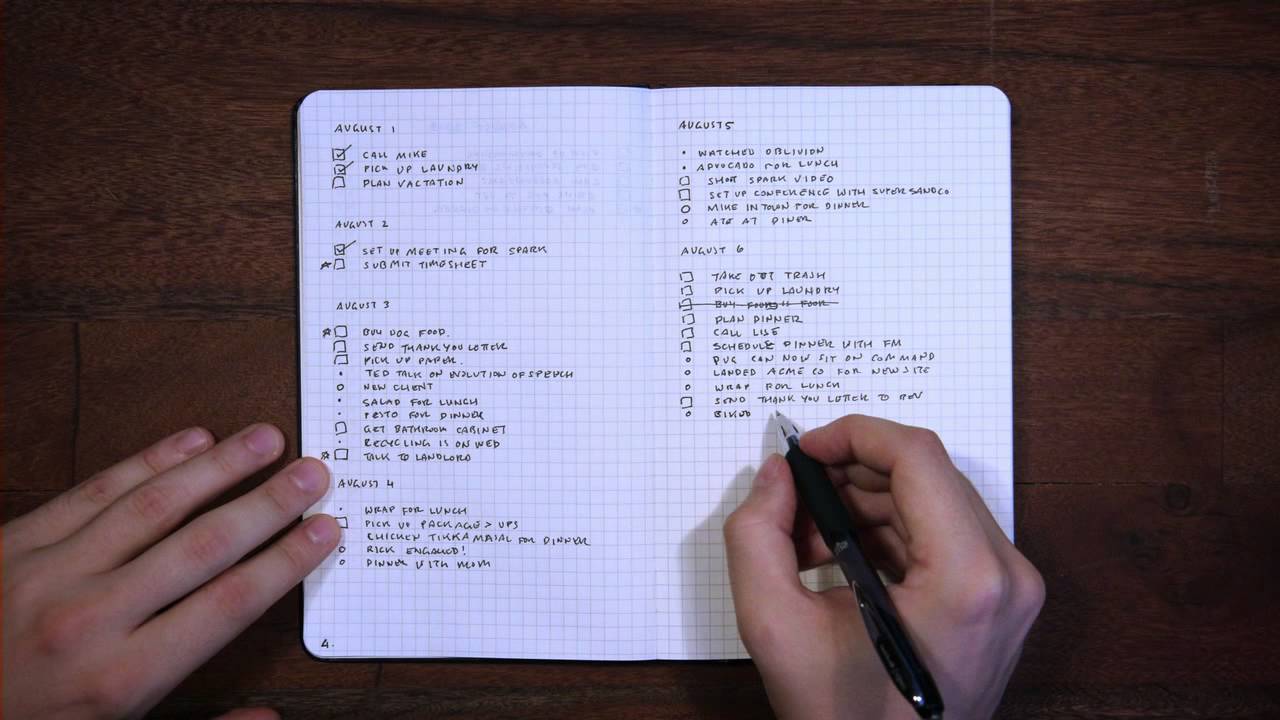 AUGUST 1
CALL MIKE
PICK UP LAUNDRY
PLAN VACTATION
AUGUST 2
SET UP MEETING FOR SPARK
SUBMIT TIMESHEET
AUGUST 3
BUY DOG FOOD.
SEND THANK YOU LETTER
PICK UP PAPER.
TED TALK ON EVOLUTION OF SPEECH
NEW CLIENT
SALAD FOR LUNCH
PESTO FOR DINNER
GET BATHROOM CABINET
RECYCLING IS ON WED
TALK TO LANDLORD
AUGUST 4
WRAP FOR LUNCH
PICK UP PACKAGE > UPS
CHICKEN TIKKA MASAL FOR DINNER
RICK ENGAGED!
DINNER WITH MOM
4.
AUGUST 5
WATCHED OBLIVION
ADVOCADO FOR LUNCH
SHOOT SPARK VIDEO
SET UP CONFERENCE WITH SUPERSANDCO
MIKE IN TOWN FOR DINNER
ATE AT DINER
AUGUST 6
TAKE OUT TRASH
PICK UP LAUNDRY
BUY FOOD
PLAN DINNER
CALL LISE
SCHEDULE DINNER WITH FM
PUG CAN NOW SIT ON COMMAND
LANDED ACME CO FOR NEWSITE
WRAP FOR LUNCH
SEND THANK YOU LETTER TO BEN